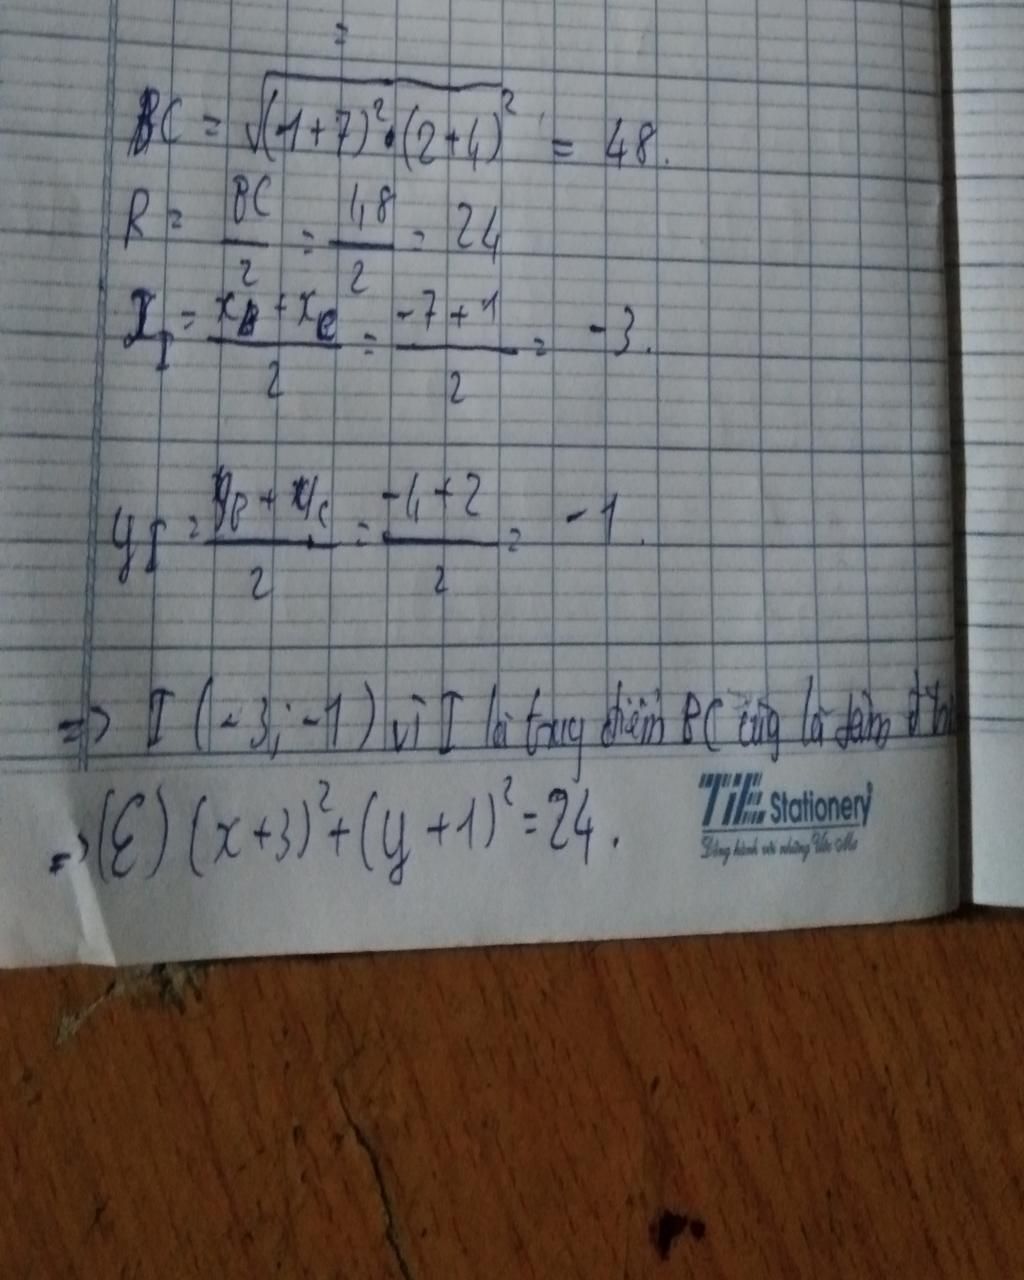 =
BC = √(-1+7)².(2+4)² = 48.
R = BC/2 = 48/2 = 24
x_I = (x_B + x_C)/2 = (-7+1)/2 = -3.
y_I = (y_B + y_C)/2 = (-4+2)/2 = -1.
=> I (-3; -1) vì I là trung điểm BC cũng là tâm
=> (C) (x+3)² + (y+1)² = 24.
TiE Stationery
Đồng hành với những Ước Mơ